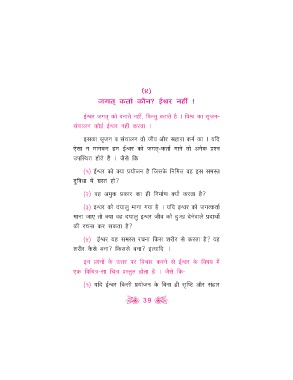 (४)
जगत् कर्ता कौन? ईश्वर नहीं !
ईश्वर जगत् को बनाते नहीं, किन्तु बताते हैं । विश्व का सृजन-
संचालन कोई ईश्वर नहीं करता ।
इसका सृजन व संचालन तो जीव और सहारा कर्म का । यदि
ऐसा न मानकर हम ईश्वर को जगत्-कर्ता माने तो अनेक प्रश्न
उपस्थित होते हैं । जैसे कि
(१) ईश्वर को क्या प्रयोजन है जिसके निमित्त वह इस समस्त
दुविधा में ग्रस्त हो?
(२) वह अमुक प्रकार का ही निर्माण क्यों करता है?
(३) ईश्वर को दयालु माना गया है । यदि ईश्वर को जगत्कर्ता
माना जाए तो क्या वह दयालु ईश्वर जीव को दुःख देनेवाले पदार्थो
की रचना कर सकता है?
(४) ईश्वर यह समस्त रचना किस शरीर से करता है? वह
शरीर कैसे बना? किसने बना? इत्यादि ।
इन प्रश्नों के उत्तर पर विचार करने से ईश्वर के विषय में
एक विचित्र-सा चित्र प्रस्तुत होता है । जैसे कि-
(१) यदि ईश्वर किसी प्रयोजन के बिना ही सृष्टि और संहार
39